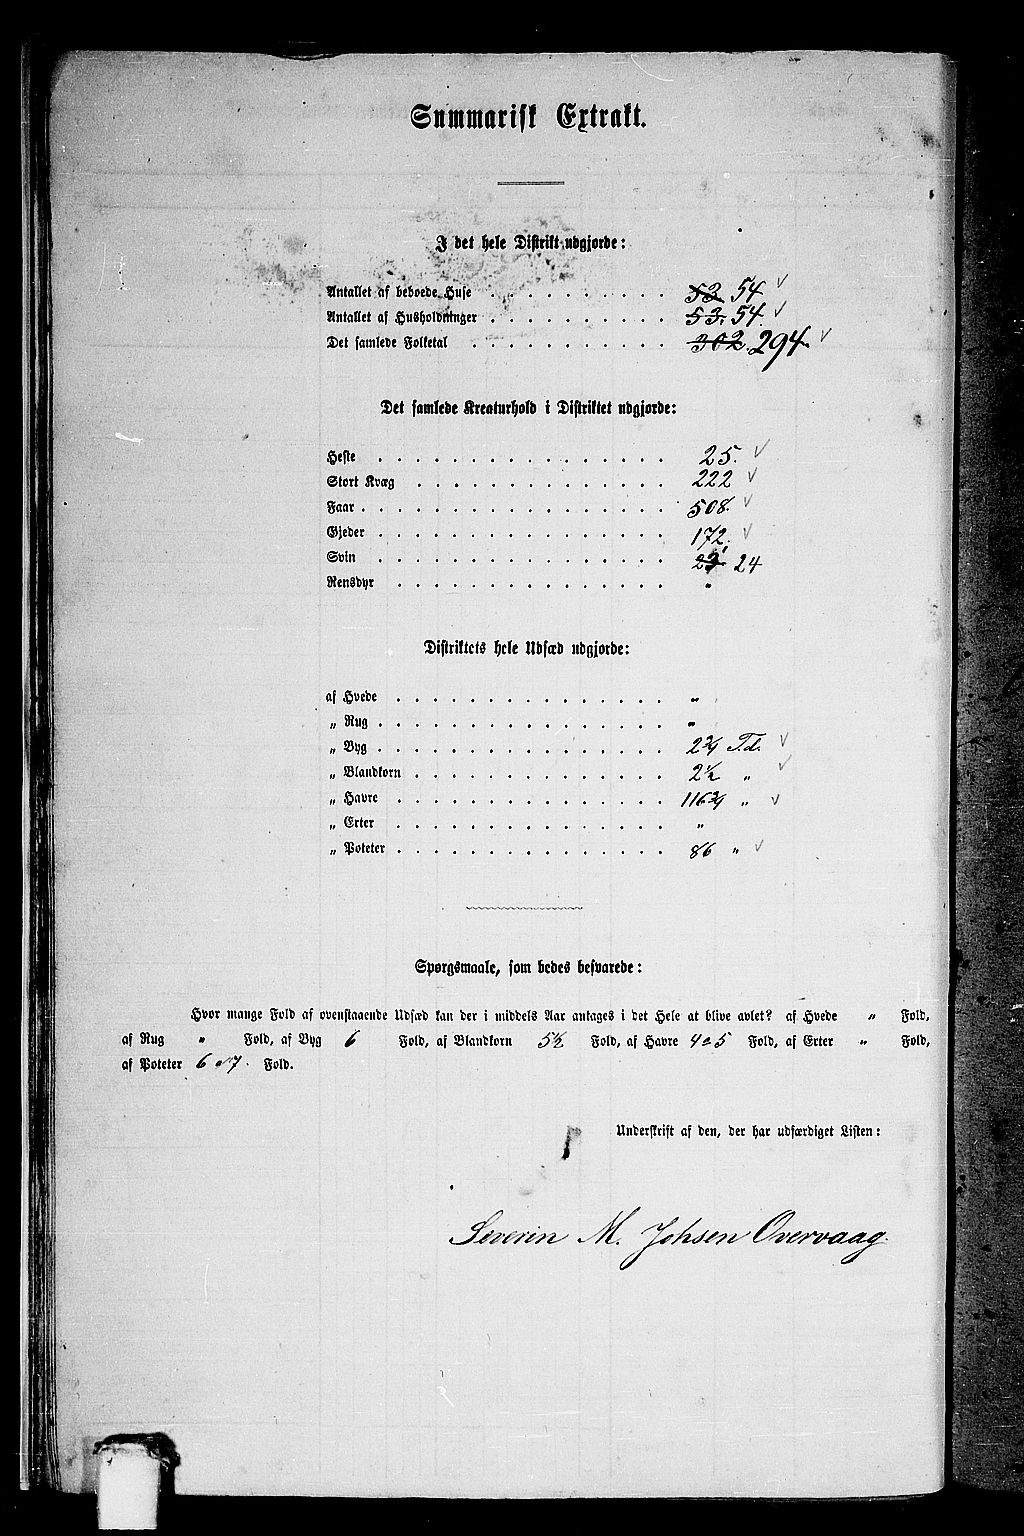 Summarisk Extrakt.
I det hele Distrikt udgjorde:
Antallet af beboede Huse . . . . . . . . . . 53. 54
Antallet af Husholdninger . . . . . . . . . . 53. 54.
Det samlede Folketal . . . . . . . . . . . 302. 294.
Det samlede Kreaturhold i Distriktet udgjorde:
Heste . . . . . . . . . . . . . . . . 25.
Stort Kvæg . . . . . . . . . . . . . . 222
Faar . . . . . . . . . . . . . . . . . 508.
Gjeder . . . . . . . . . . . . . . . . 172.
Svin . . . . . . . . . . . . . . . . 24
Rensdyr . . . . . . . . . . . . . . . "
Distriktets hele Udsæd udgjorde:
af Hvede . . . . . . . . . . . . . . . "
„ Rug . . . . . . . . . . . . . . . . "
„ Byg . . . . . . . . . . . . . . . . 2 3/4 Td.
„ Blandkorn . . . . . . . . . . . . . . 2 1/2 "
„ Havre . . . . . . . . . . . . . . . 116 3/4 "
„ Erter . . . . . . . . . . . . . . . "
„ Poteter . . . . . . . . . . . . . . . 86 "
Spørgsmaale, som bedes besvarede:
Hvor mange Fold af ovenstaaende Udsæd kan der i middels Aar antages i det Hele at blive avlet? af Hvede " Fold,
af Rug " Fold, af Byg 6 Fold, af Blandkorn 5 1/2 Fold, af Havre 4 a 5 Fold, af Erter " Fold,
af Poteter 6 a 7. Fold.
Underskrift af den, der har udfærdiget Listen:
Severin M. Johsen Overvaag.